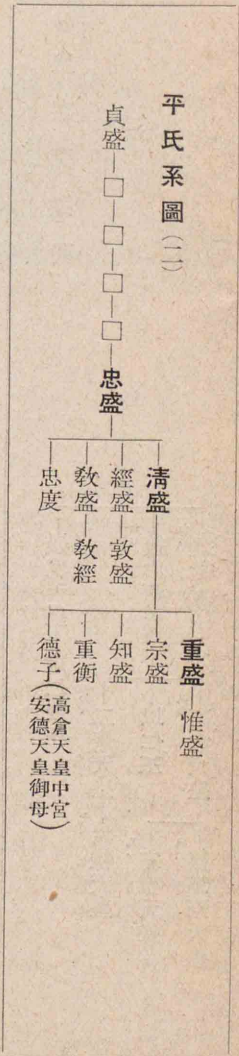 平氏系圖(二)
貞盛―□―□―□―□―忠盛
清盛
經盛―敦盛
敎盛―敎經
忠度
重盛―惟盛
宗盛
知盛
重衡
德子(高倉天皇中宮
安德天皇御母)